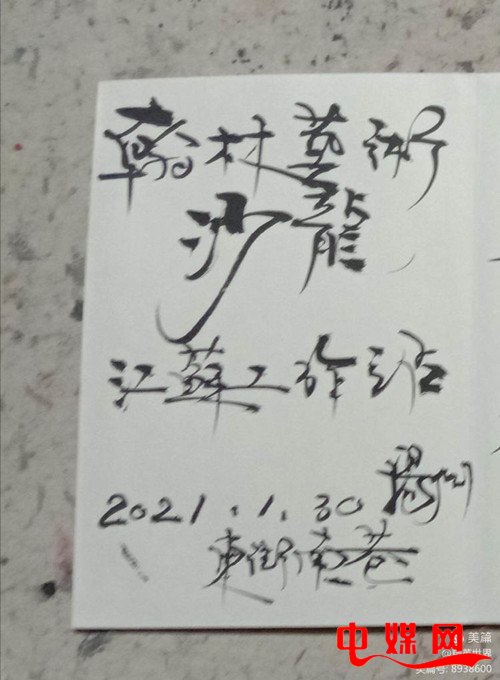 翰村藝術
沙龍
江蘇工作站
2021.1.30 揚州
東街南巷
美篇
中媒网
美篇号: 8938600